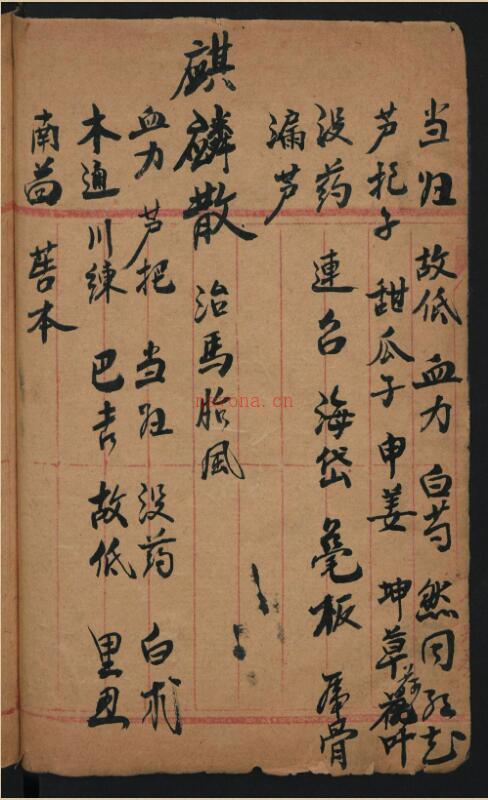 当归 故低 血力 白芍 然同 红花
芦把子 甜瓜子 申姜 坤草 荷叶
没药 連召 海岱 毫板 虎骨
漏芦
麒麟散 治馬胎風
血力 芦把 当归 没药 白朮
木通 川練 巴吉 故低 里丑
南茴 蒿本
nerona.cn